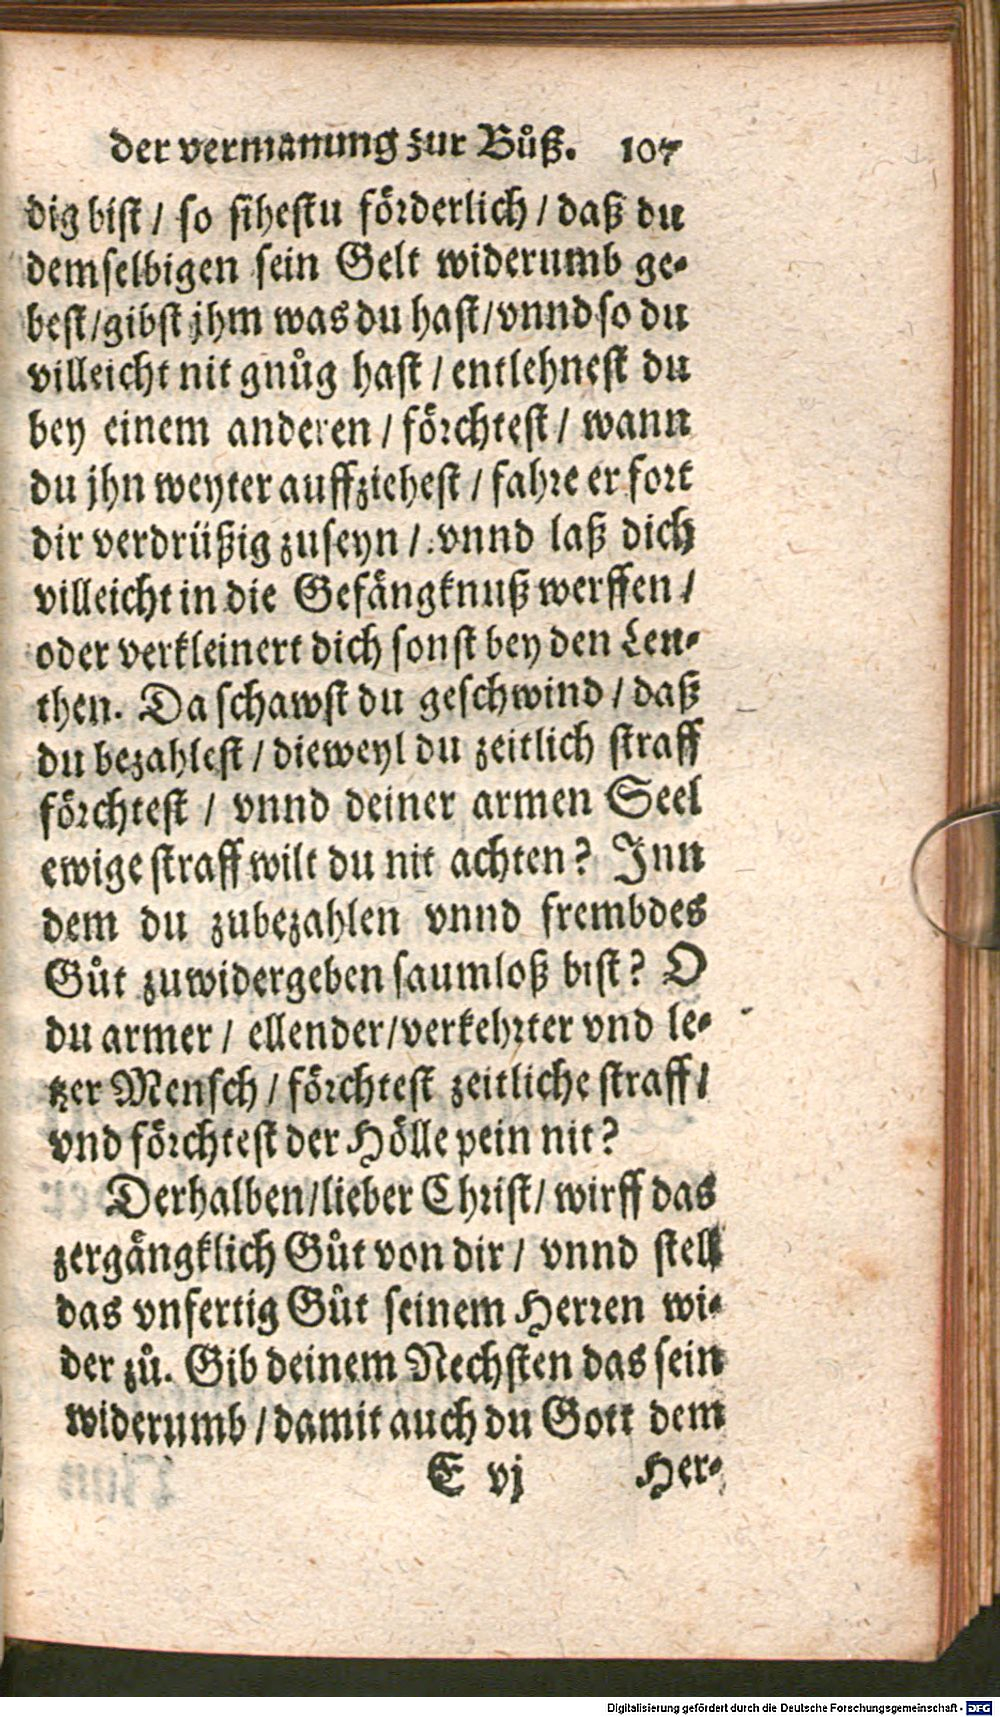 der vermanung zur Bůß. 107
dig bist / so sihestu förderlich / daß du
demselbigen sein Gelt widerumb ge-
best/gibst jhm was du hast/vnnd so du
villeicht nit gnůg hast / entlehnest du
bey einem anderen / förchtest / wann
du jhn weyter auffziehest / fahre er fort
dir verdrüßig zuseyn / vnnd laß dich
villeicht in die Gefängknuß werffen /
oder verkleinert dich sonst bey den Leu-
then. Da schawst du geschwind / daß
du bezahlest / dieweyl du zeitlich straff
förchtest / vnnd deiner armen Seel
ewige straff wilt du nit achten? Inn
dem du zubezahlen vnnd frembdes
Gůt zuwidergeben saumloß bist? O
du armer / ellender/verkehrter vnd le-
tzer Mensch / förchtest zeitliche straff /
vnd förchtest der Hölle pein nit?
Derhalben/lieber Christ/ wirff das
zergängklich Gůt von dir / vnnd stell
das vnfertig Gůt seinem Herren wi-
der zů. Gib deinem Nechsten das sein
widerumb / damit auch du Gott dem
E vj Her-
Digitalisierung gefördert durch die Deutsche Forschungsgemeinschaft - DFG